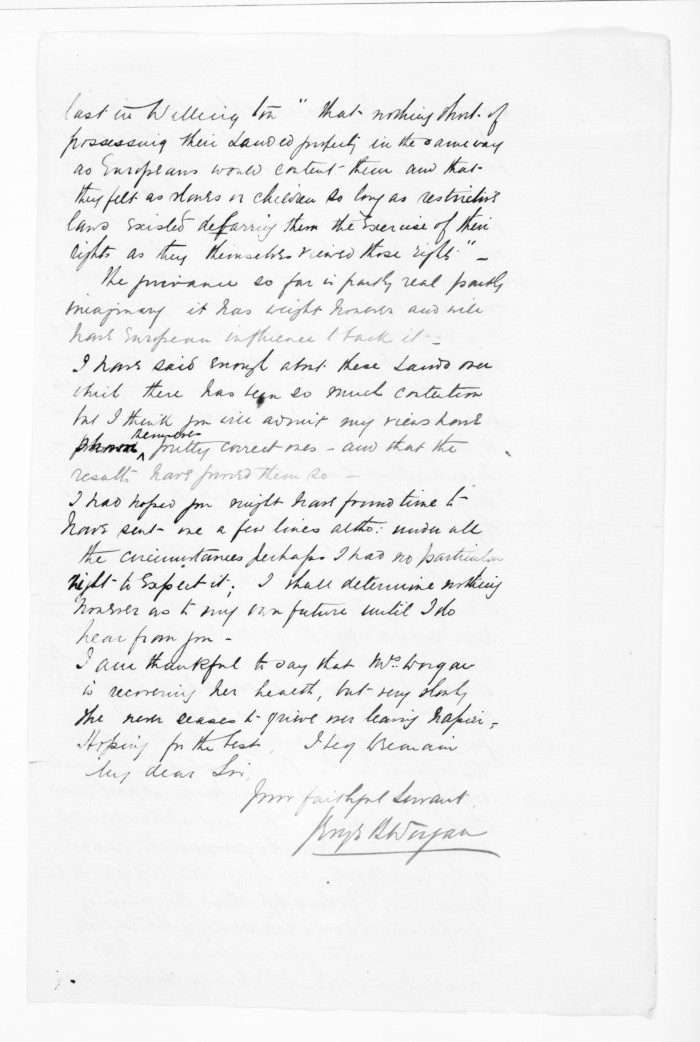 last in Wellington "that nothing short of
possessing their Landed property in the same way
as Europeans would content them and that
they felt as slaves or children so long as restrictive
laws existed debarring them the Exercise of their
rights as they themselves viewed those rights." —
The grievance so far is partly real partly
imaginary it has weight however and will
have European influence to back it —
I have said enough about these Lands over
which there has been so much contention
but I think you will admit my views have
themselves
pretty correct ones — and that the
results have proved them so —
I had hoped you might have found time to
have sent me a few lines altho: under all
the circumstances perhaps I had no particular
right to Expect it; I shall determine nothing
however as to my own future until I do
hear from you —
I am thankful to say that Mrs. Worgan
is recovering her health, but very slowly
she never ceases to grieve over leaving Napier,
Hoping for the best, I beg to remain
My dear Sir,
Your faithful Servant,
Worgan